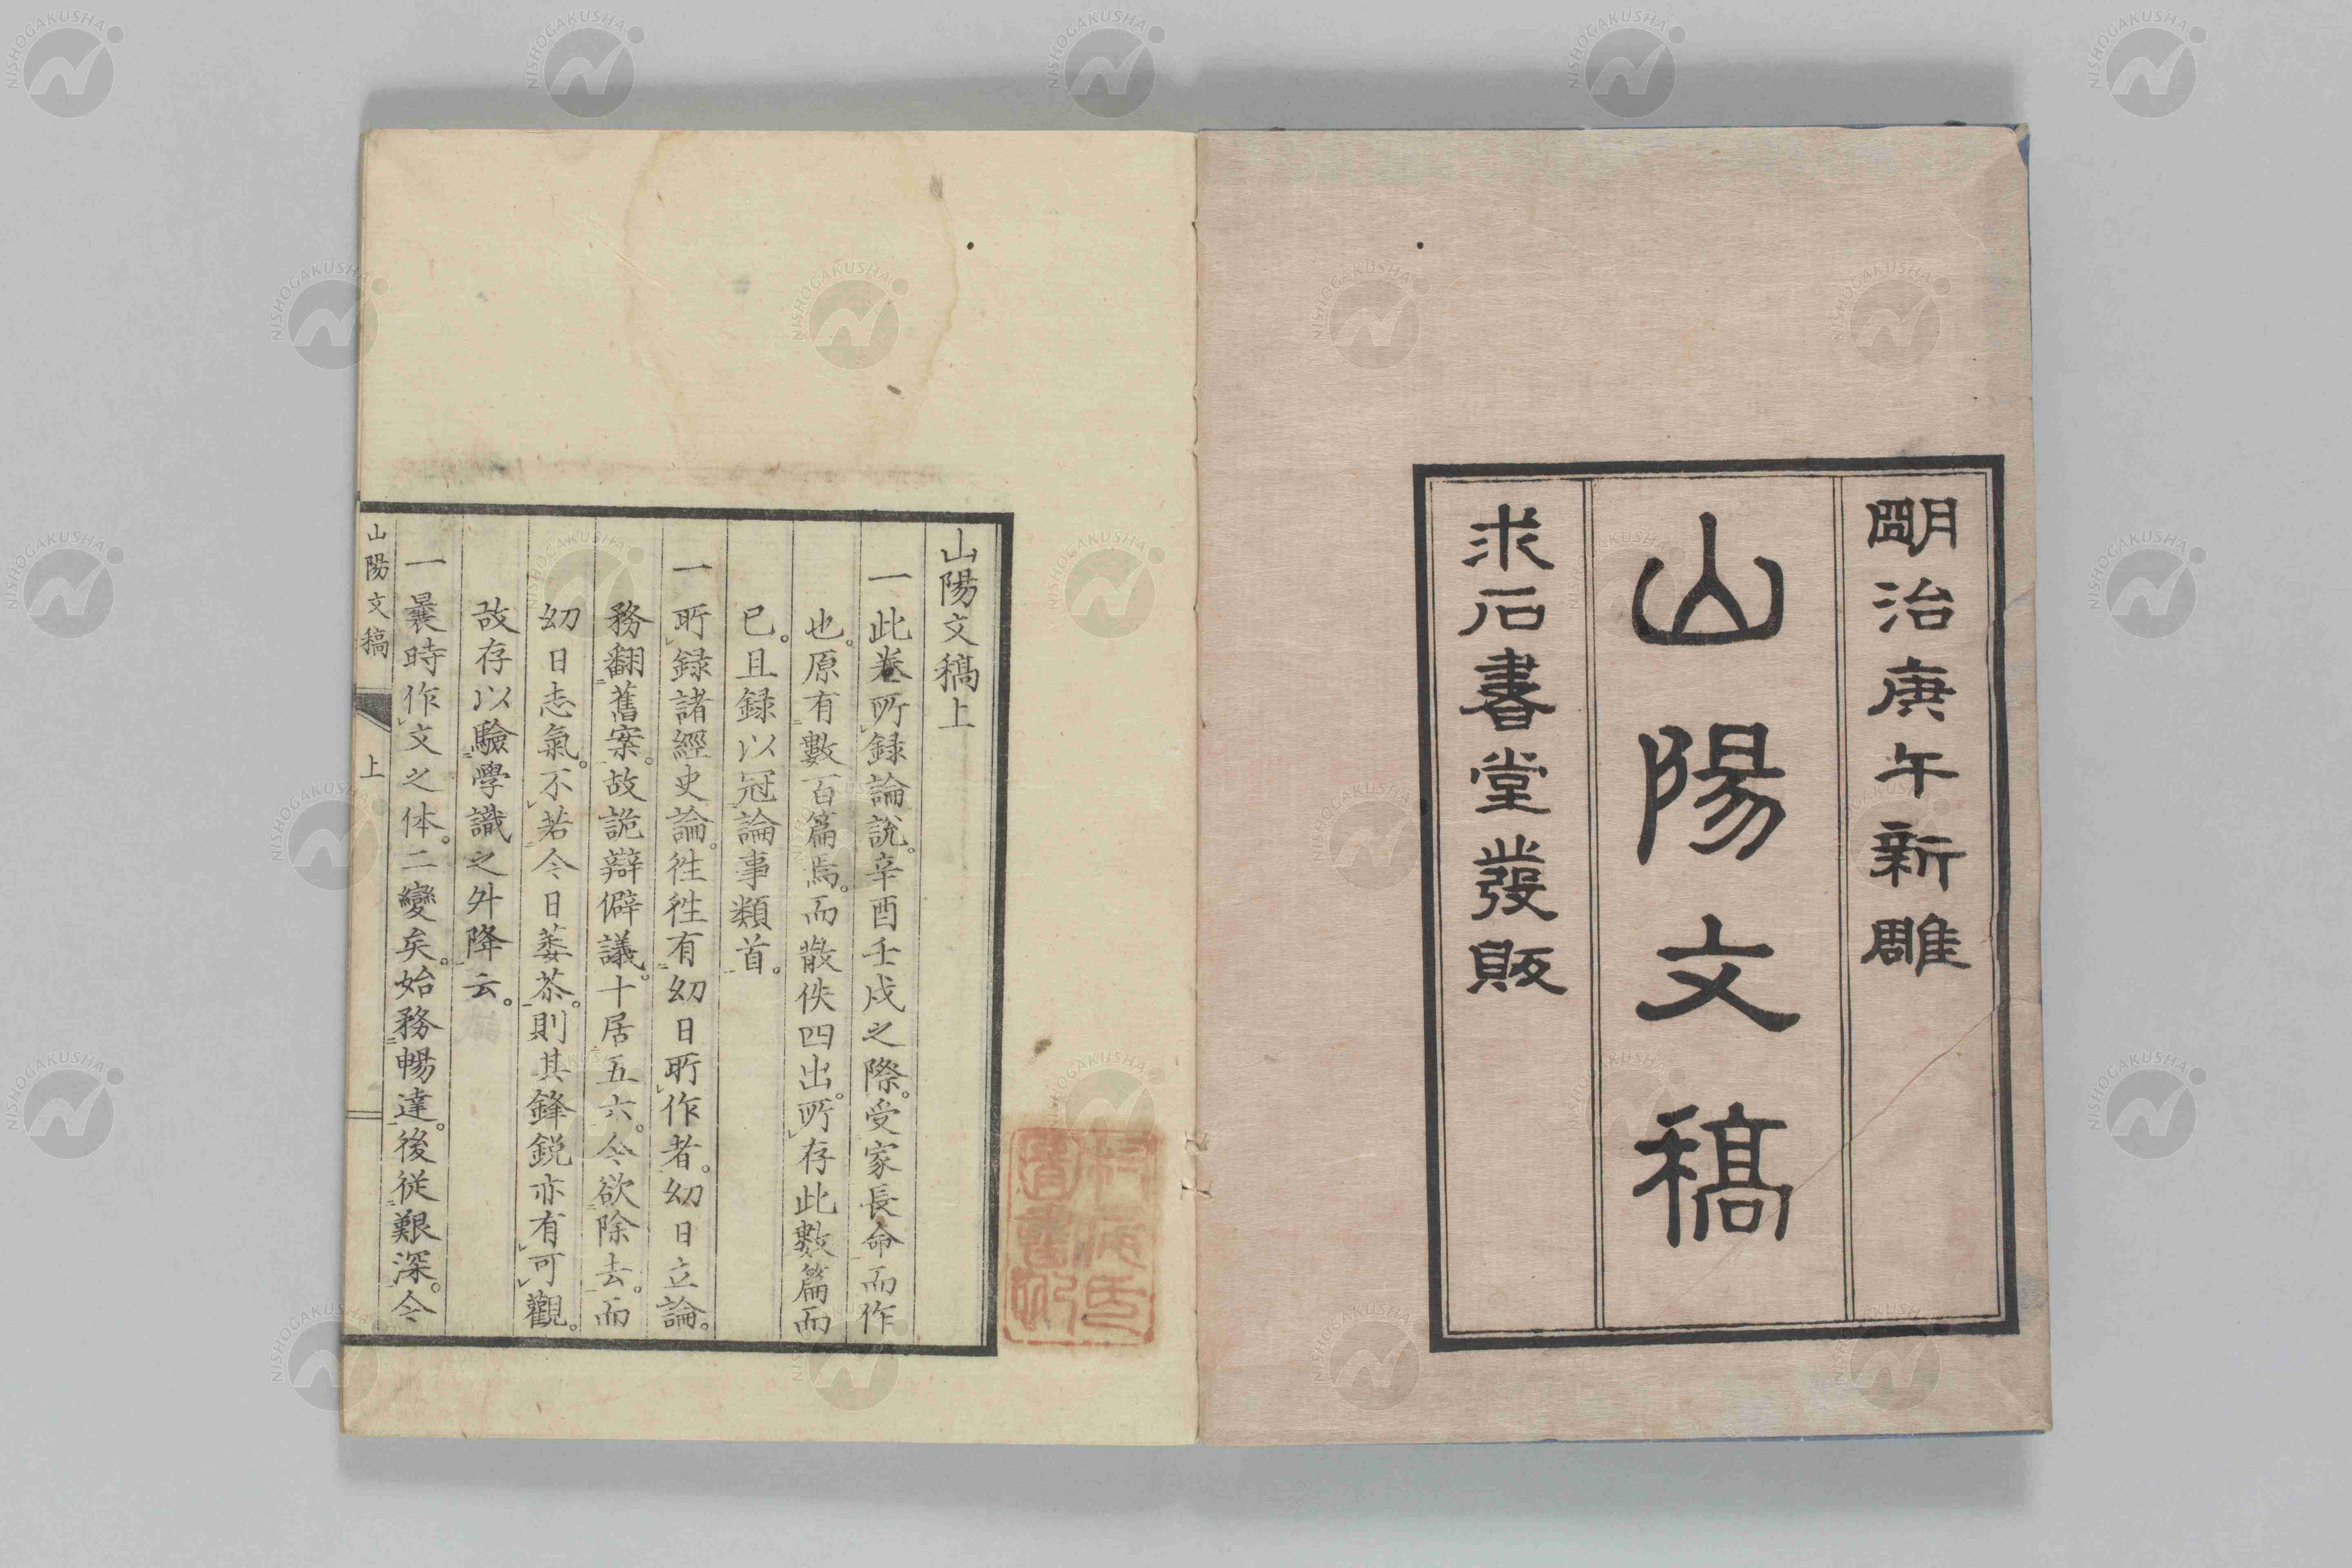 明治庚午新雕
山陽文稿
求石書堂發販
山陽文稿上
一此卷所録論説。辛酉壬戌之際。受家長命而作
也。原有數百篇焉。而散佚四出。所存此數篇而
已。且録以冠論事類首。
一所録諸經史論。徃徃有幼日所作者。幼日立論。
務翻舊案。故詭辯僻議。十居五六。今欲除去。而
幼日志氣。不若今日萎苶。則其鋒鋭亦有可觀。
故存以驗學識之外降云。
一曩時作文之体。二變矣。始務暢達。後従艱深。今
山陽文稿
上
NISHOGAKUSHA